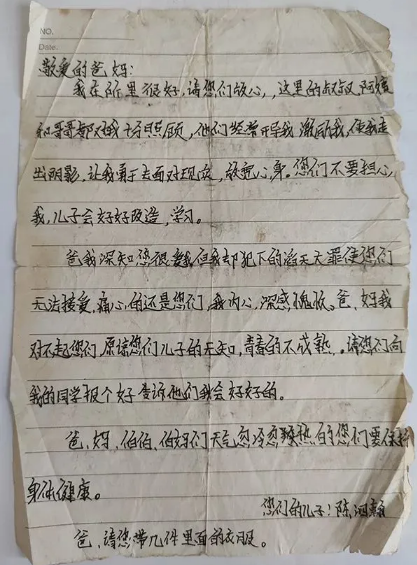 NO.
Date.
敬爱的爸妈:
我在所里很好,请您们放心,这里的叔叔阿姨
和哥哥都对我十分照顾,他们经常开导我激励我,使我走
出阴影,让我勇于去面对现实,放宽心身。您们不要担心
我,儿子会好好改造,学习。
爸我深知您很爱我但我却犯下的滔天大罪使您们
无法接受,痛心的还是您们,我内心,深感愧疚。爸、妈我
对不起您们原谅您们儿子的无知,青春的不成熟。请您们向
我的同学报个好告诉他们我会好好的。
爸、妈、伯伯、伯妈们天气忽冷忽热的您们要保护
身体健康。
您们的儿子:陈
爸、请您带几件里面的衣服。